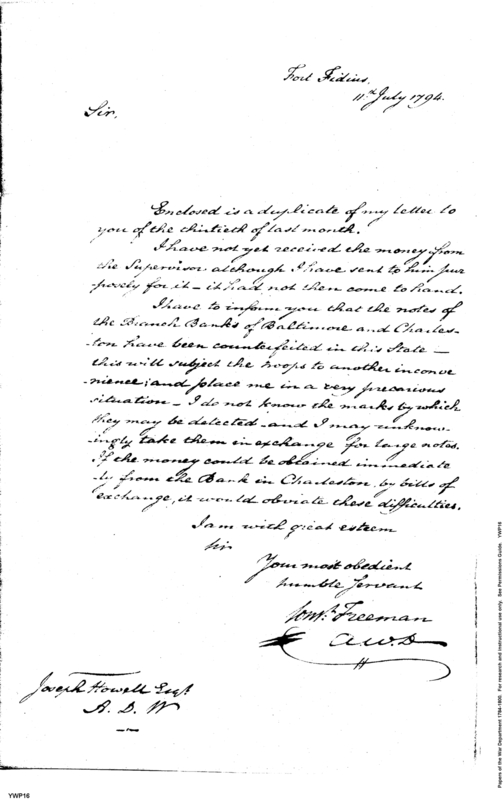 Fort Fidius.
11th July 1794.
Sir,
Enclosed is a duplicate of my letter to
you of the thirtieth of last month.
I have not yet received the money from
the Supervisor although I have sent to him pur
posely for it – it had not then come to hand.
I have to inform you that the notes of
the Branch Banks of Baltimore and Charles-
-ton have been counterfeited in this State –
this will subject the troops to another inconve
nience; and place me in a very precarious
situation – I do not know the marks by which
they may be detected and I may unknow-
ingly take them in exchange for large notes.
If the money could be obtained immediate
ly from the Bank in Charleston, by bills of
exchange, it would obviate these difficulties.
I am with great esteem
Sir
Your most obedient
humble Servant
Const. Freeman
A.W.D
Joseph Howell Esqr.
A. D. W
YWP16
Papers of the War Department 1784-1800. For research and instructional use only. See Permissions Guide. YWP16